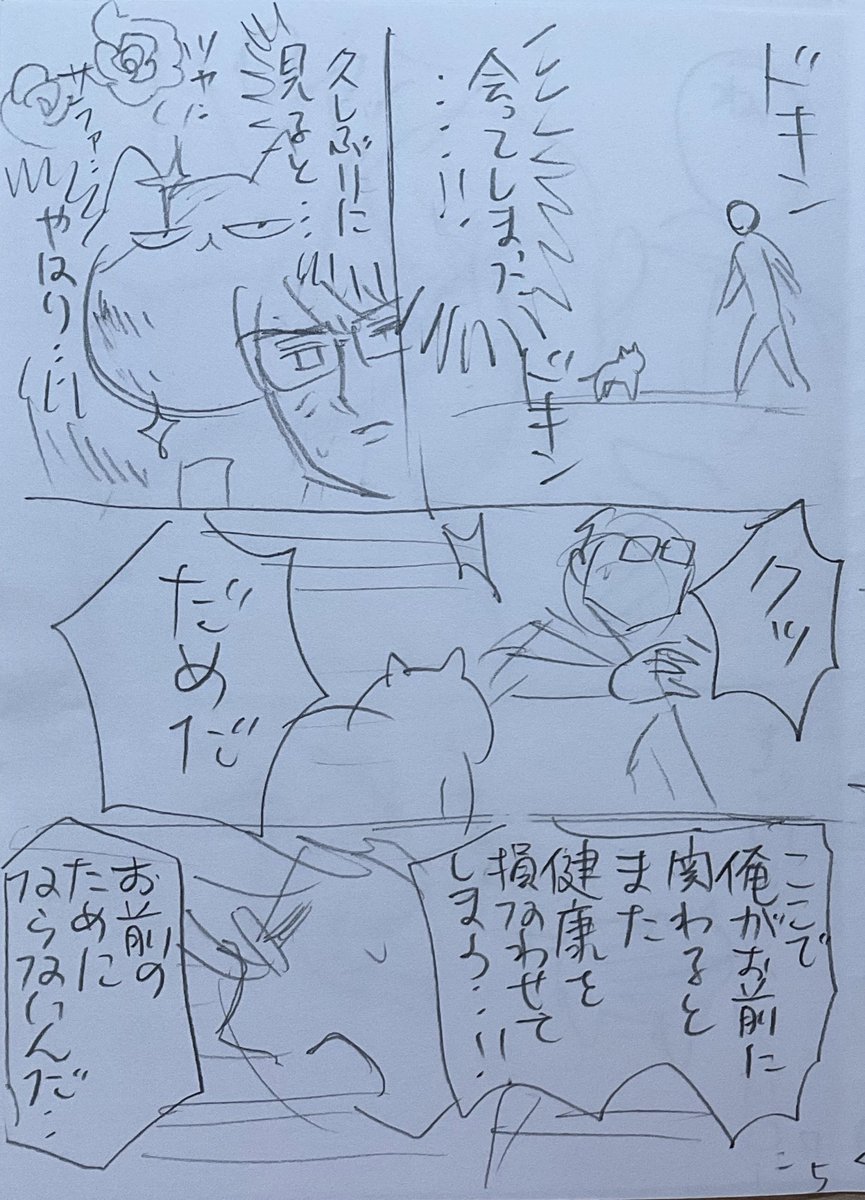 ドキン
会ってしまった
……!!
ドキン
久しぶりに
見ると…
やはり…!!
ツヤ…
サファ…
クッ
だめだ
ここで
俺がお前に
関わると
また
健康を
損なわせて
しまう…!!
お前の
ために
ならないんだ…
5